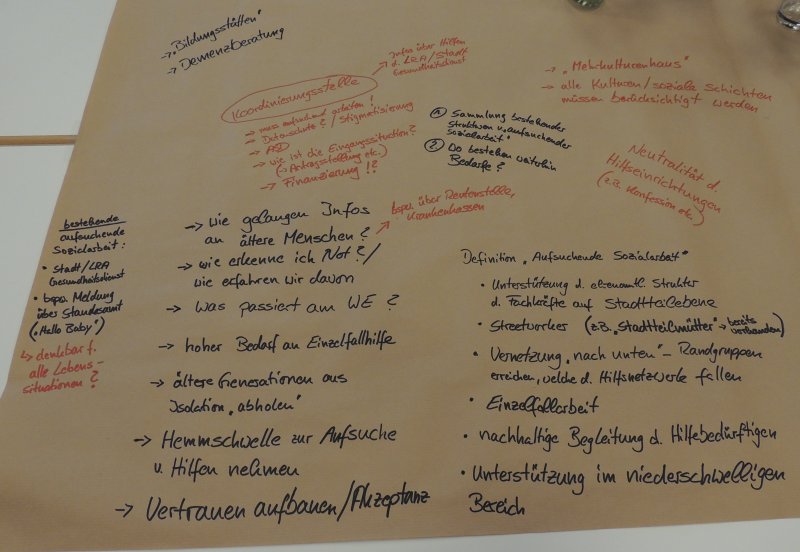 → „Bildungsstätten"
→ Demenzberatung
Koordinierungsstelle
→ Infos über Hilfen
d. LRA/Stadt
Gesundheitsdienst
→ muss aufsuchend arbeiten!
→ Datenschutz? / Stigmatisierung
→ ASD
→ wie ist die Eingangssituation?
(→ Antragsstellung etc.)
→ Finanzierung !?
① Sammlung bestehender
Strukturen v. „aufsuchender
Sozialarbeit"
② Wo bestehen weiterhin
Bedarfe?
→ „Mehrkulturenhaus"
→ alle Kulturen/soziale Schichten
müssen berücksichtigt werden
Neutralität d.
Hilfseinrichtungen
(z.B. Konfession etc.)
bestehende
aufsuchende
Sozialarbeit:
• Stadt/LRA
Gesundheitsdienst
• bspw. Meldung
über Standesamt
(„Hallo Baby")
↳ denkbar f.
alle Lebens-
situationen?
→ wie gelangen Infos
an ältere Menschen?
bspw. über Rentenstelle,
Krankenkassen
→ wie erkenne ich Not?/
wie erfahren wir davon
→ Was passiert am WE?
→ hoher Bedarf an Einzelfallhilfe
→ ältere Generationen aus
Isolation „abholen"
→ Hemmschwelle zur Aufsuche
v. Hilfen nehmen
→ Vertrauen aufbauen/Akzeptanz
Definition „Aufsuchende Sozialarbeit"
• Unterstützung d. ehrenamtl. Struktur
d. Fachkräfte auf Stadtteilebene
• Streetworker (z.B. „Stadtteilmütter" → bereits
vorhanden)
• Vernetzung „nach unten" – Randgruppen
erreichen, welche d. Hilfsnetzwerke fallen
• Einzelfallarbeit
• nachhaltige Begleitung d. Hilfebedürftigen
• Unterstützung im niederschwelligen
Bereich